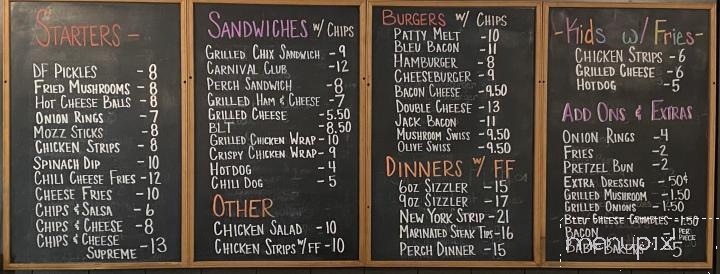 STARTERS -
DF PICKLES - 8
FRIED MUSHROOMS - 8
HOT CHEESE BALLS - 8
ONION RINGS - 7
MOZZ STICKS - 8
CHICKEN STRIPS - 8
SPINACH DIP - 10
CHILI CHEESE FRIES - 12
CHEESE FRIES - 10
CHIPS & SALSA - 6
CHIPS & CHEESE - 8
CHIPS & CHEESE
SUPREME - 13
SANDWICHES W/ CHIPS
GRILLED CHIX SANDWICH - 9
CARNIVAL CLUB - 12
PERCH SANDWICH - 8
GRILLED HAM & CHEESE - 7
GRILLED CHEESE - 5.50
BLT - 8.50
GRILLED CHICKEN WRAP - 10
CRISPY CHICKEN WRAP - 9
HOTDOG - 4
CHILI DOG - 5
OTHER
CHICKEN SALAD - 10
CHICKEN STRIPS W/ FF - 10
BURGERS W/ CHIPS
PATTY MELT - 10
BLEU BACON - 11
HAMBURGER - 8
CHEESEBURGER - 9
BACON CHEESE - 9.50
DOUBLE CHEESE - 13
JACK BACON - 11
MUSHROOM SWISS - 9.50
OLIVE SWISS - 9.50
DINNERS W/ FF
6OZ SIZZLER - 15
9OZ SIZZLER - 17
NEW YORK STRIP - 21
MARINATED STEAK TIPS - 16
PERCH DINNER - 15
- Kids w/ Fries -
CHICKEN STRIPS - 6
GRILLED CHEESE - 6
HOTDOG - 5
ADD ONS & EXTRAS
ONION RINGS - 4
FRIES - 2
PRETZEL BUN - 2
EXTRA DRESSING - 50¢
GRILLED MUSHROOM - 1.50
GRILLED ONIONS - 1.50
BLEU CHEESE CRUMBLES - 1.50
BACON - 1 PER PIECE
5
menupix